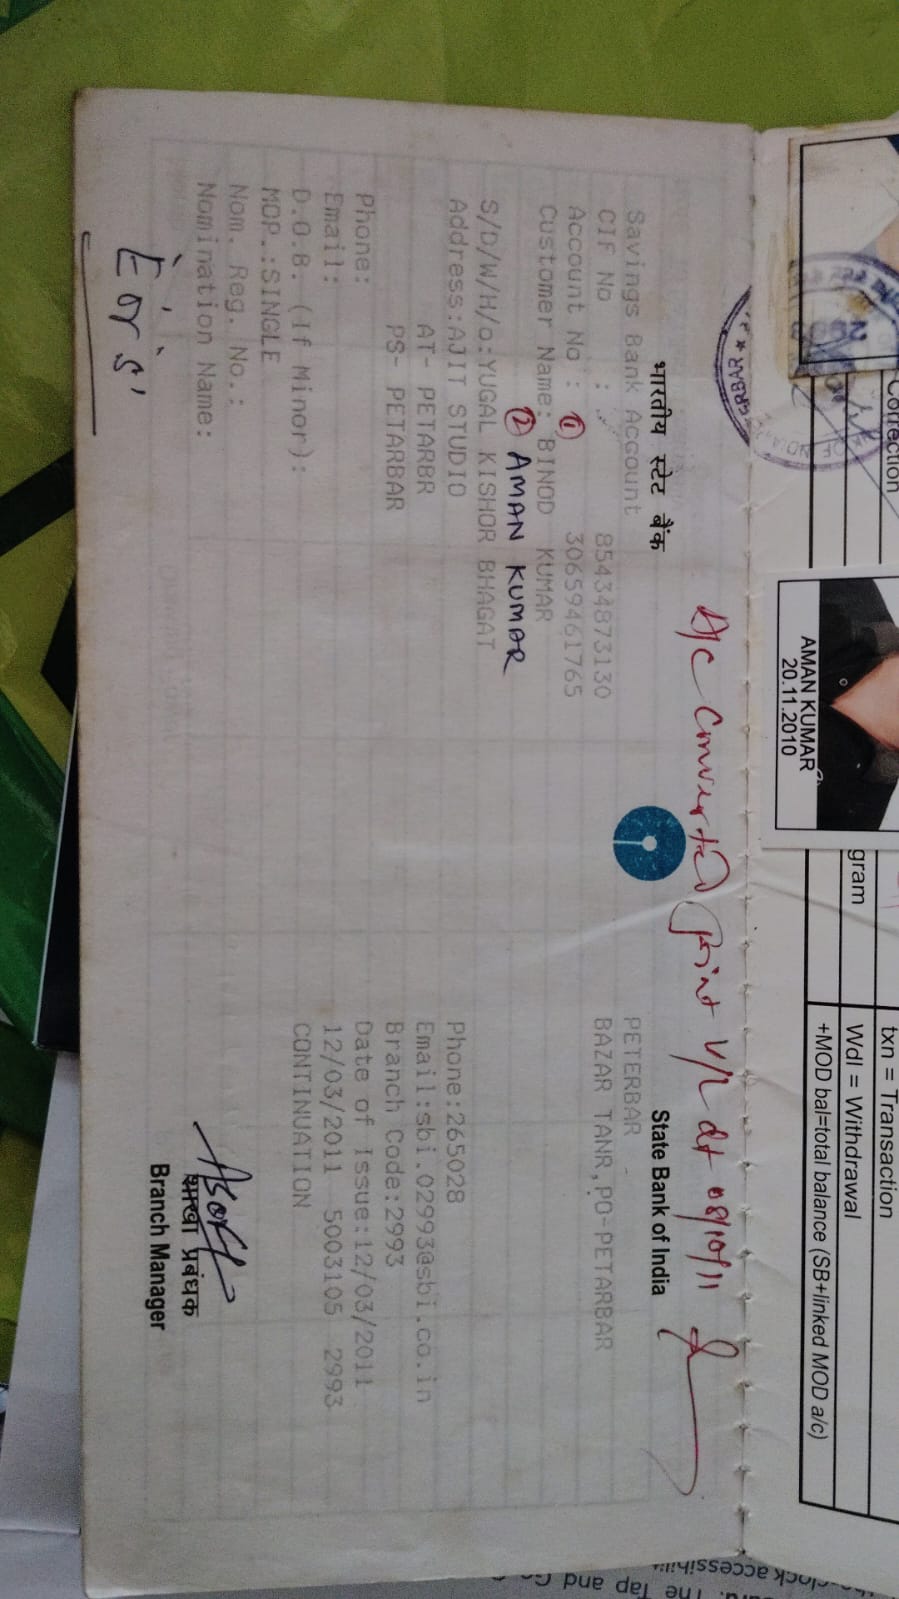 A/c Converted Joint V/R dt 08/10/11
भारतीय स्टेट बैंक
State Bank of India
Savings Bank Account
CIF No : 85434873130
Account No : 30659461765
Customer Name: ① BINOD KUMAR
② AMAN KUMAR
S/D/W/H/o:YUGAL KISHOR BHAGAT
Address:AJIT STUDIO
AT- PETARBR
PS- PETARBAR
Phone:
Email:
D.O.B. (If Minor):
MOP.:SINGLE
Nom. Reg. No.:
Nomination Name:
E or S'
PETERBAR -
BAZAR TANR,PO-PETARBAR
Phone:265028
Email:sbi.02993@sbi.co.in
Branch Code:2993
Date of Issue:12/03/2011
12/03/2011 5003105 2993
CONTINUATION
शाखा प्रबंधक
Branch Manager
Correction
AMAN KUMAR
20.11.2010
gram
txn = Transaction
Wdl = Withdrawal
+MOD bal=total balance (SB+linked MOD a/c)
ERBAR *
clock accessibili
The Tap and G